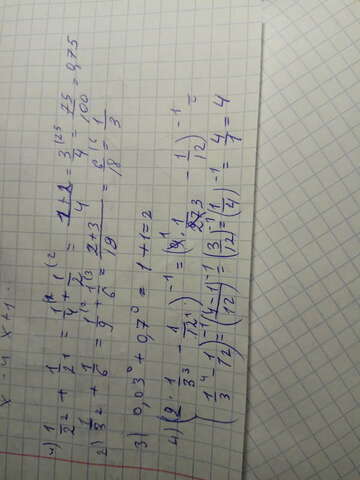 x - 4 x + 1 .
1) 1/2² + 1/2¹ = 1/4 + 1/2 ⁽² = 1+2/4 = 3/4 ⁽²⁵ = 75/100 = 0,75
2) 1/3² + 1/6 = 1/9 ⁽² + 1/6 ⁽³ = 2+3/18 = 6/18 ⁽⁶ = 1/3
3) 0,03⁰ + 0,7⁰ = 1 + 1 = 2
4) (9 · 1/3³ - 1/12¹)⁻¹ = (9 · 1/273 - 1/12)⁻¹ =
(1/3 ⁴ - 1/12)⁻¹ = (4-1/12)⁻¹ = (3/12)⁻¹ = (1/4)⁻¹ = 4/1 = 4